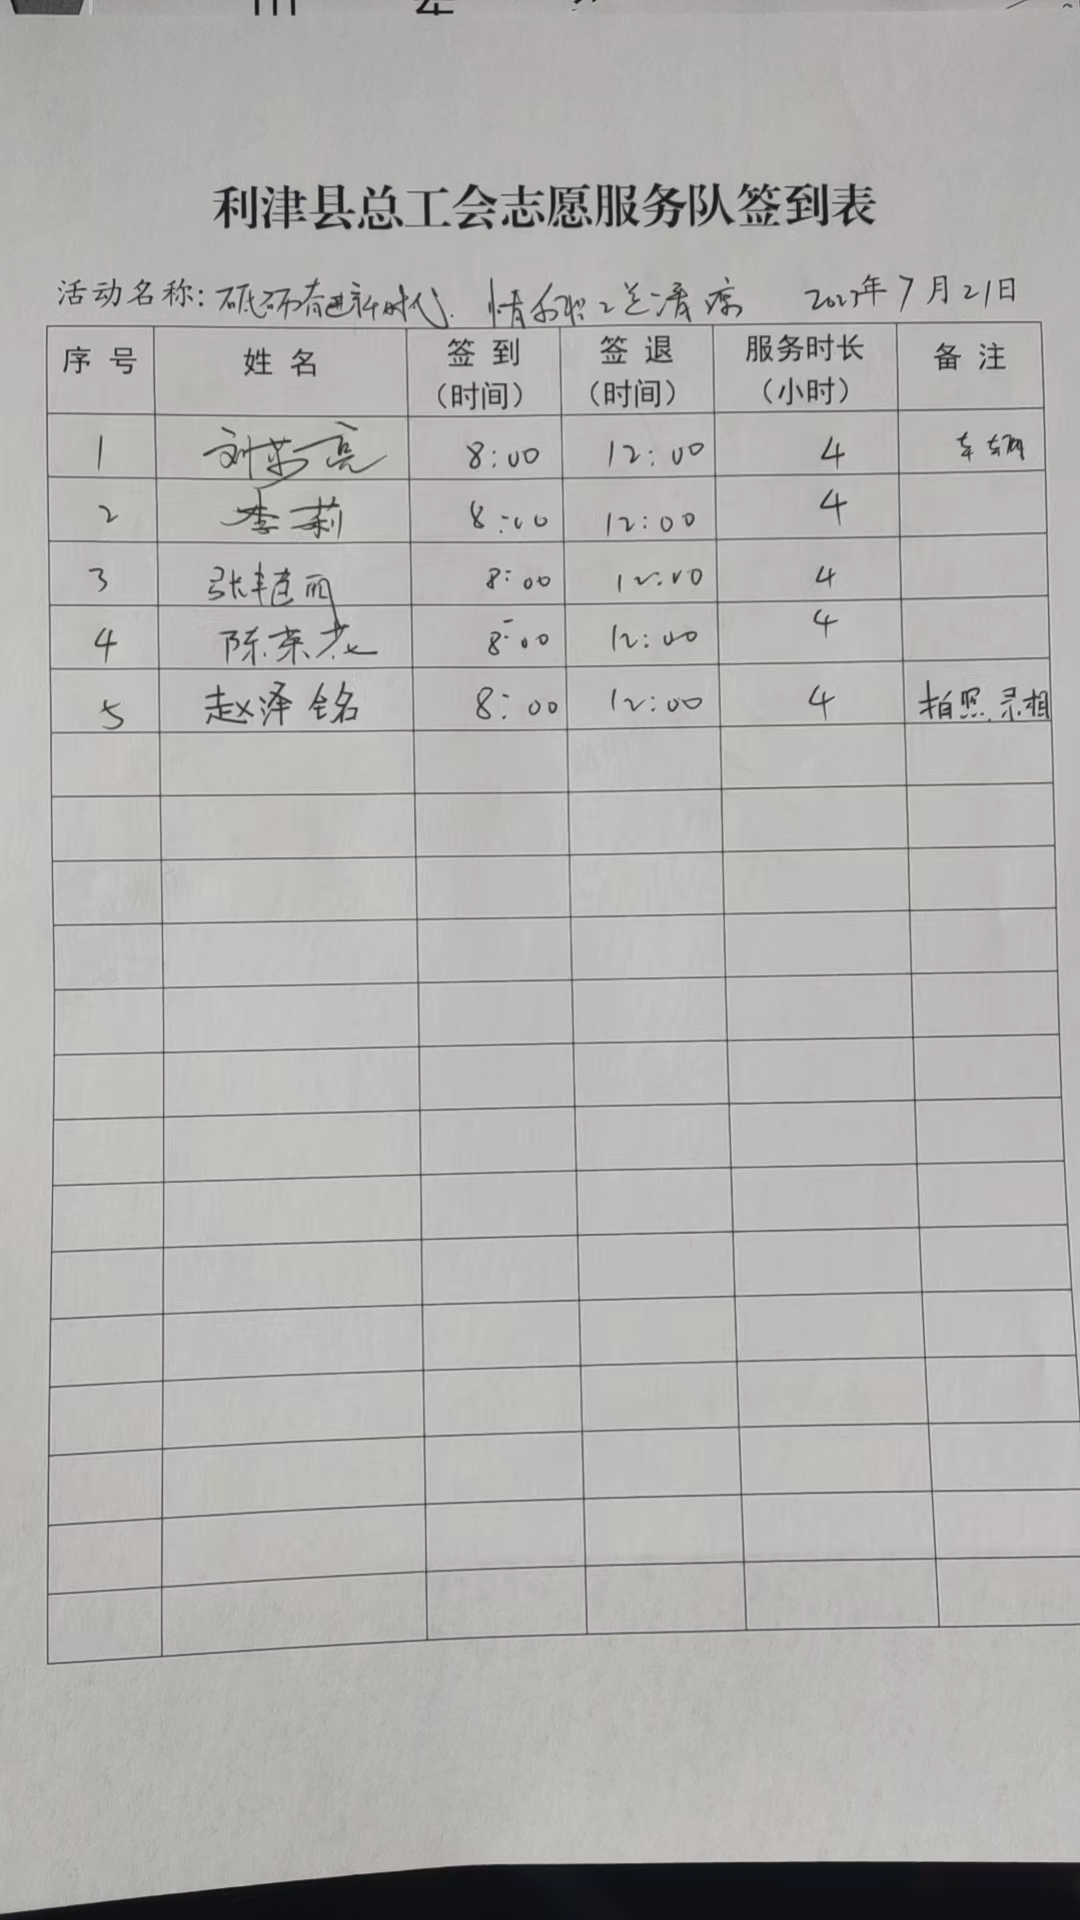 利津县总工会志愿服务队签到表
活动名称: 砥砺奋进新时代 情系职工送清凉 2023年7月21日
序号 姓名 签到(时间) 签退(时间) 服务时长(小时) 备注
1 刘芳亮 8:00 12:00 4 车辆
2 李莉 8:00 12:00 4
3 张艳丽 8:00 12:00 4
4 陈荣花 8:00 12:00 4
5 赵泽铭 8:00 12:00 4 拍照、录相